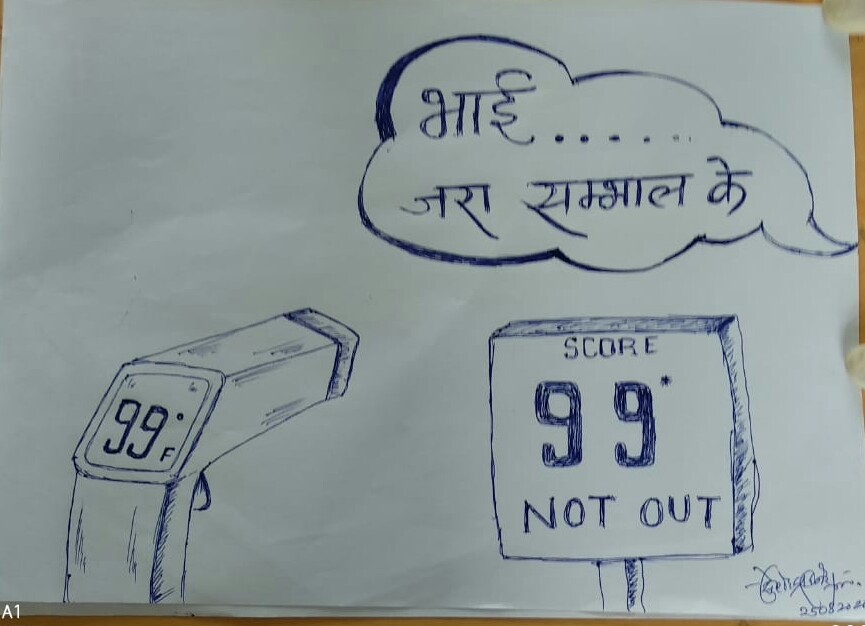 भाई.......
जरा सम्भाल के
99°F
SCORE
99*
NOT OUT
25082020
A1